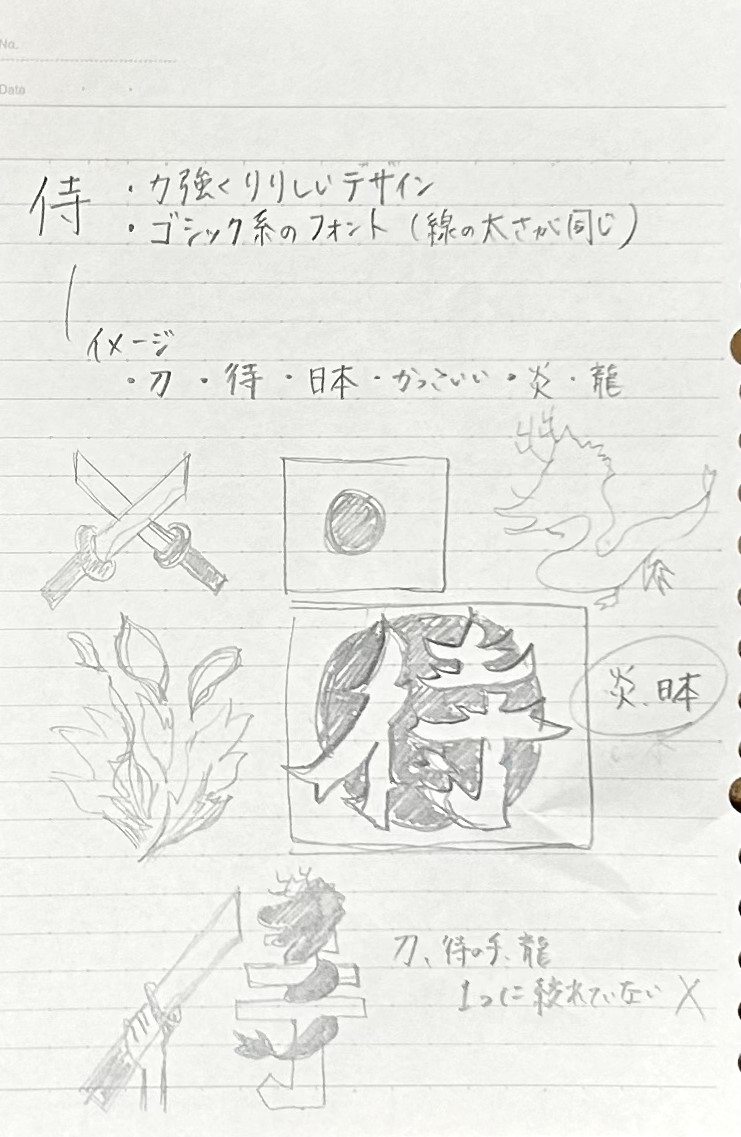 No.
Date
侍
・力強くりりしいデザイン
・ゴシック系のフォント(線の太さが同じ)
イメージ
・刀・侍・日本・かっこいい・炎・龍
侍
炎、日本
刀、侍の手、龍
1つに絞れていない ×